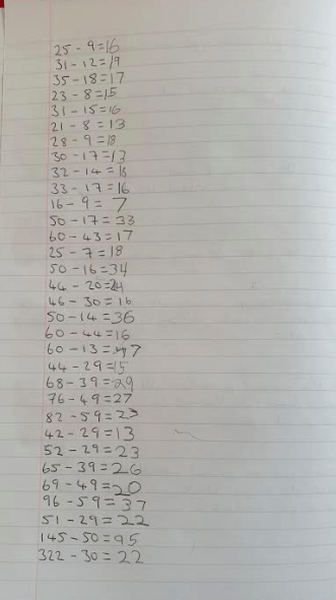 25 - 9 = 16
31 - 12 = 19
35 - 18 = 17
23 - 8 = 15
31 - 15 = 16
21 - 8 = 13
28 - 9 = 18
30 - 17 = 13
32 - 14 = 18
33 - 17 = 16
16 - 9 = 7
50 - 17 = 33
60 - 43 = 17
25 - 7 = 18
50 - 16 = 34
44 - 20 = 24
46 - 30 = 16
50 - 14 = 36
60 - 44 = 16
60 - 13 = 47
44 - 29 = 15
68 - 39 = 29
76 - 49 = 27
82 - 59 = 23
42 - 29 = 13
52 - 29 = 23
65 - 39 = 26
69 - 49 = 20
96 - 59 = 37
51 - 29 = 22
145 - 50 = 95
322 - 30 = 22